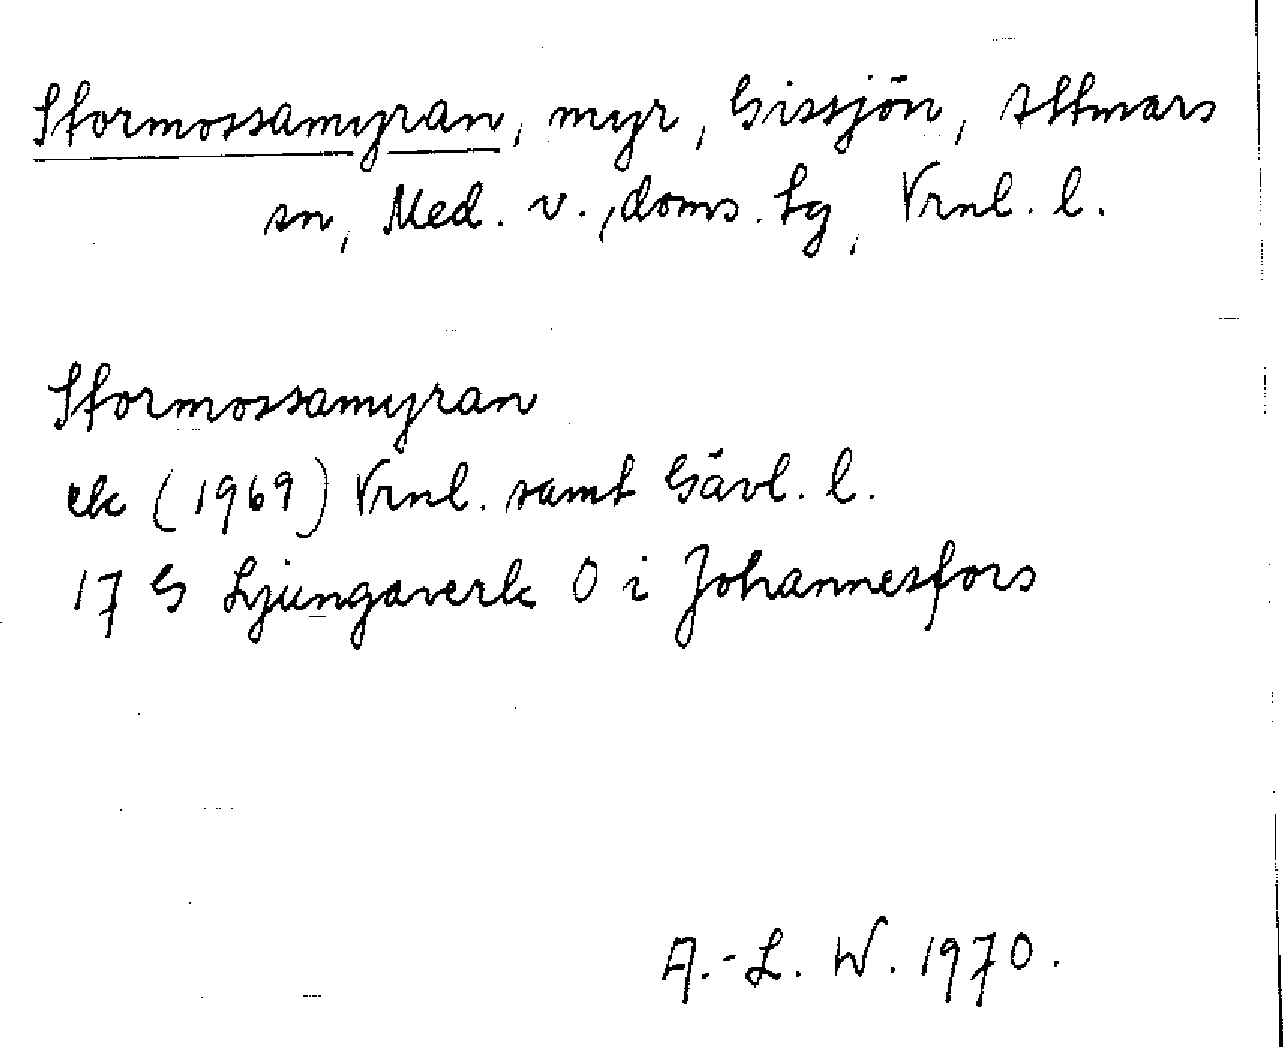 Stormossamyran, myr, Gissjön, Attmars
sn, Med. v., doms. tg, Vrnl. l.
Stormossamyran
ek (1969) Vrnl. samt Gävl. l.
17 G Ljungaverk 0 i Johannesfors
A.-L. W. 1970.